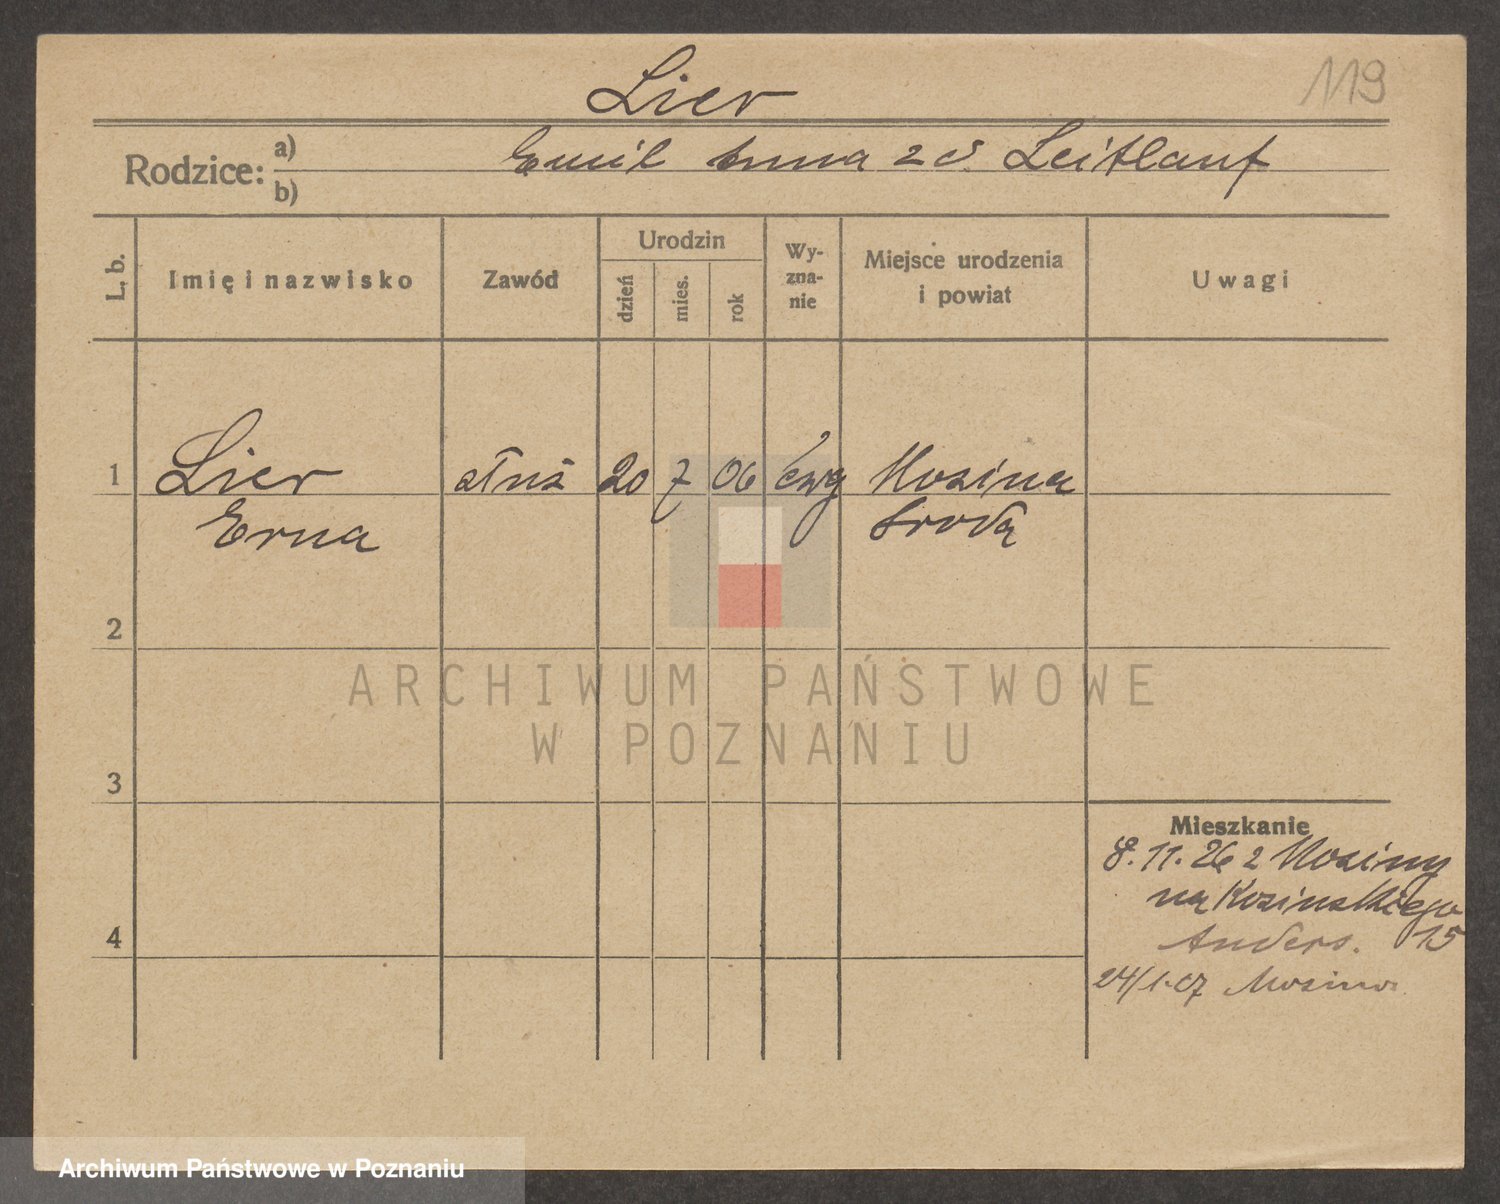 119
Lier
Rodzice: a) b)
Emil Anna z d. Leitlauf
L. b.
Imię i nazwisko
Zawód
Urodzin
dzień
mies.
rok
Wy-
zna-
nie
Miejsce urodzenia
i powiat
Uwagi
1
Lier
Erna
służ
20 7 06 ewg
Mosina
Środa
2
3
4
Mieszkanie
8.11.26 z Mosiny
na Kosińskiego
15
Anders.
24/1.07 Mosina
ARCHIWUM PAŃSTWOWE
W POZNANIU
Archiwum Państwowe w Poznaniu